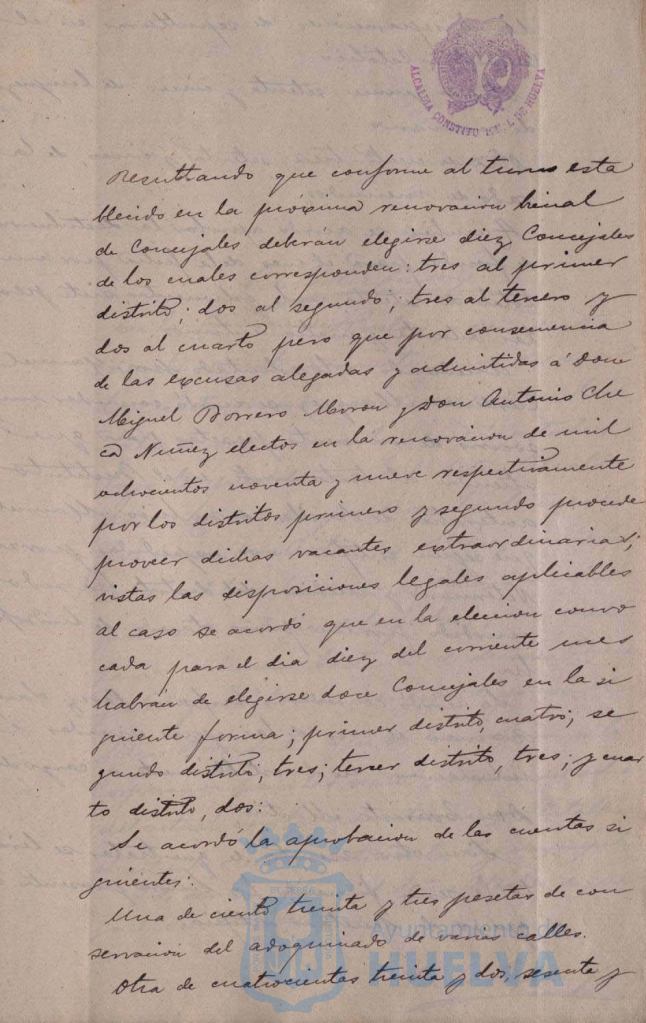 ALCALDIA CONSTITU   L DE HUELVA
Resultando que conforme al turno esta
blecido en la próxima renovacion bienal
de Concejales deberán elegirse diez Concejales
de los cuales corresponden: tres al primer
distrito; dos al segundo; tres al tercero y
dos al cuarto pero que por consecuencia
de las excusas alegadas y admitidas á Don
Miguel Borrero Moron y Don Antonio Che
ca Nuñez electos en la renovacion de mil
ochocientos noventa y nueve respectivamente
por los distritos primero y segundo procede
proveer dichas vacantes extraordinarias;
vistas las disposiciones legales aplicables
al caso se acordó que en la eleccion convo
cada para el dia diez del corriente mes
habrán de elegirse doce Concejales en la si
guiente forma; primer distrito, cuatro; se
gundo distrito, tres; tercer distrito, tres; y cuar
to distrito, dos:
Se acordó la aprobacion de las cuentas si
guientes:
Una de ciento treinta y tres pesetas de con
servacion del adoquinado de varias calles.
Otra de cuatrocientas treinta y dos, sesenta y
Ayuntamiento de
HUELVA